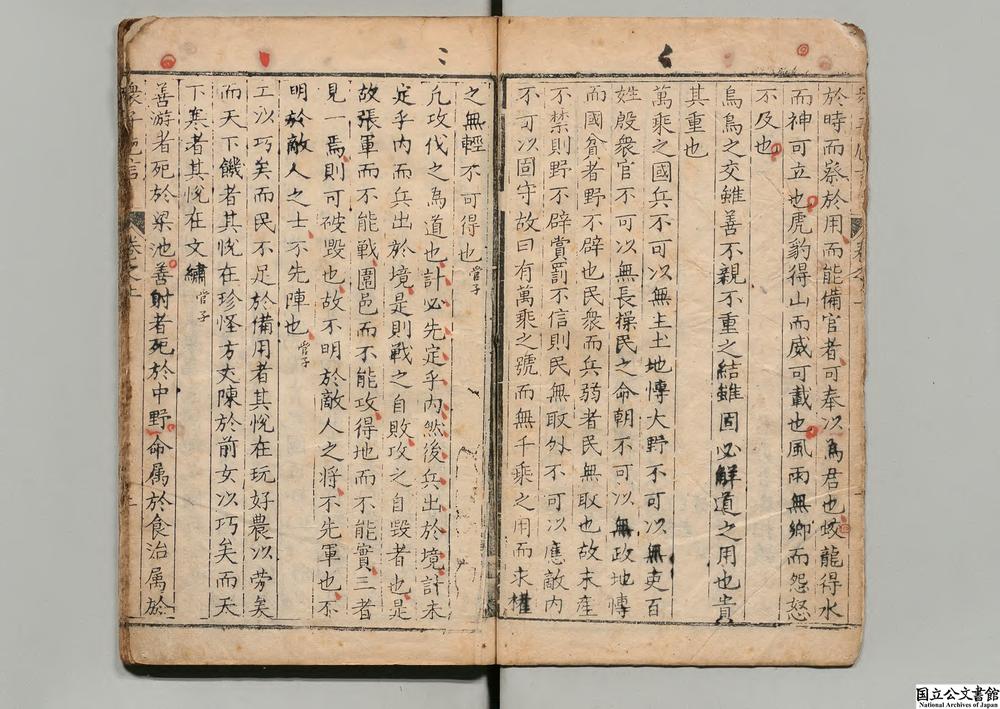 於時而察於用而能備官者可奉以為君也蛟龍得水
而神可立也虎豹得山而威可載也風雨無鄉而怨怒
不及也
烏烏之交雖善不親不重之結雖固必解道之用也貴
其重也
萬乘之國兵不可以無主土地愽大野不可以無吏百
姓殷衆官不可以無長操民之命朝不可以無政地愽
而國貧者野不辟也民衆而兵弱者民無取也故末產
不禁則野不辟賞罰不信則民無取外不可以應敵内
不可以固守故曰有萬乘之號而無千乘之用而求權
之無輕不可得也 管子
凢攻伐之為道也計必先定乎内然後兵出於境計未
定乎内而兵出於境是則戰之自敗攻之自毀者也是
故張軍而不能戰圍邑而不能攻得地而不能實三者
見一焉則可破毀也故不明於敵人之将不先軍也不
明於敵人之士不先陣也 管子
工以巧矣而民不足於備用者其恱在玩好農以劳矣
而天下饑者其恱在珍怪方丈陳於前女以巧矣而天
下寒者其恱在文繡 管子
善游者死於梁池善射者死於中野命属於食治属於
卷之上
国立公文書館
National Archives of Japan